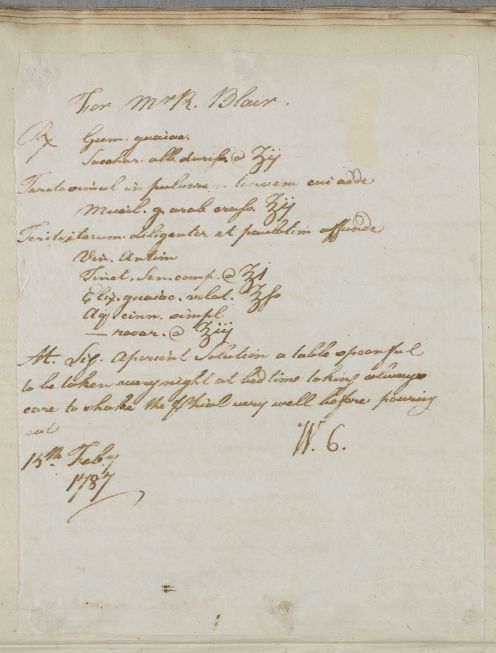 For Mr R. Blair.
℞ Gum. guaiac.
Sacchar. alb. duriss. @ ʒij
Terito simul in pulverem tenuem cui adde
Mucil. g. arab. crass. ʒij
Teritis iterum diligenter et paulatim affunde
Vin. Antim
Tinct. Sen. comp. @ ℥j
Elix. guaiac. volat. ℥ſs
Aq cinn. simpl.
— rosar. @ ℥iij
M. Sig. Aperient Solution a table spoonful
to be taken every night at bed time taking always
care to shake the Phial very well before pouring
out
W. C.
15th Feby
1787